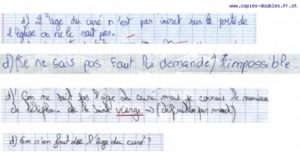 www.copies-doubles.fr.st
d) L'age du curé n'est par inscrit sur la porte de
l'église on ne le sait pas.
d) (Je ne sais pas faut lui demande) impossible.
d) On ne sait pas l'âge du curé mais je connais le numéro
de téléphone de la sainte vierge →
d) on s'en fout de l'âge du curé?